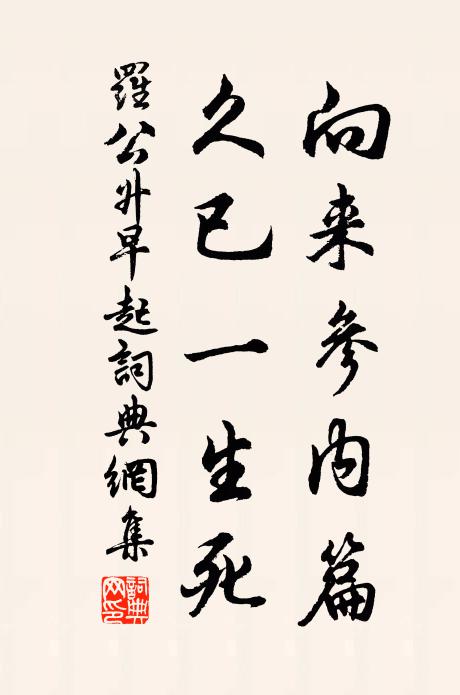 向来參内篇
久已一生死
羅公升早起詞典網集
詞典网印